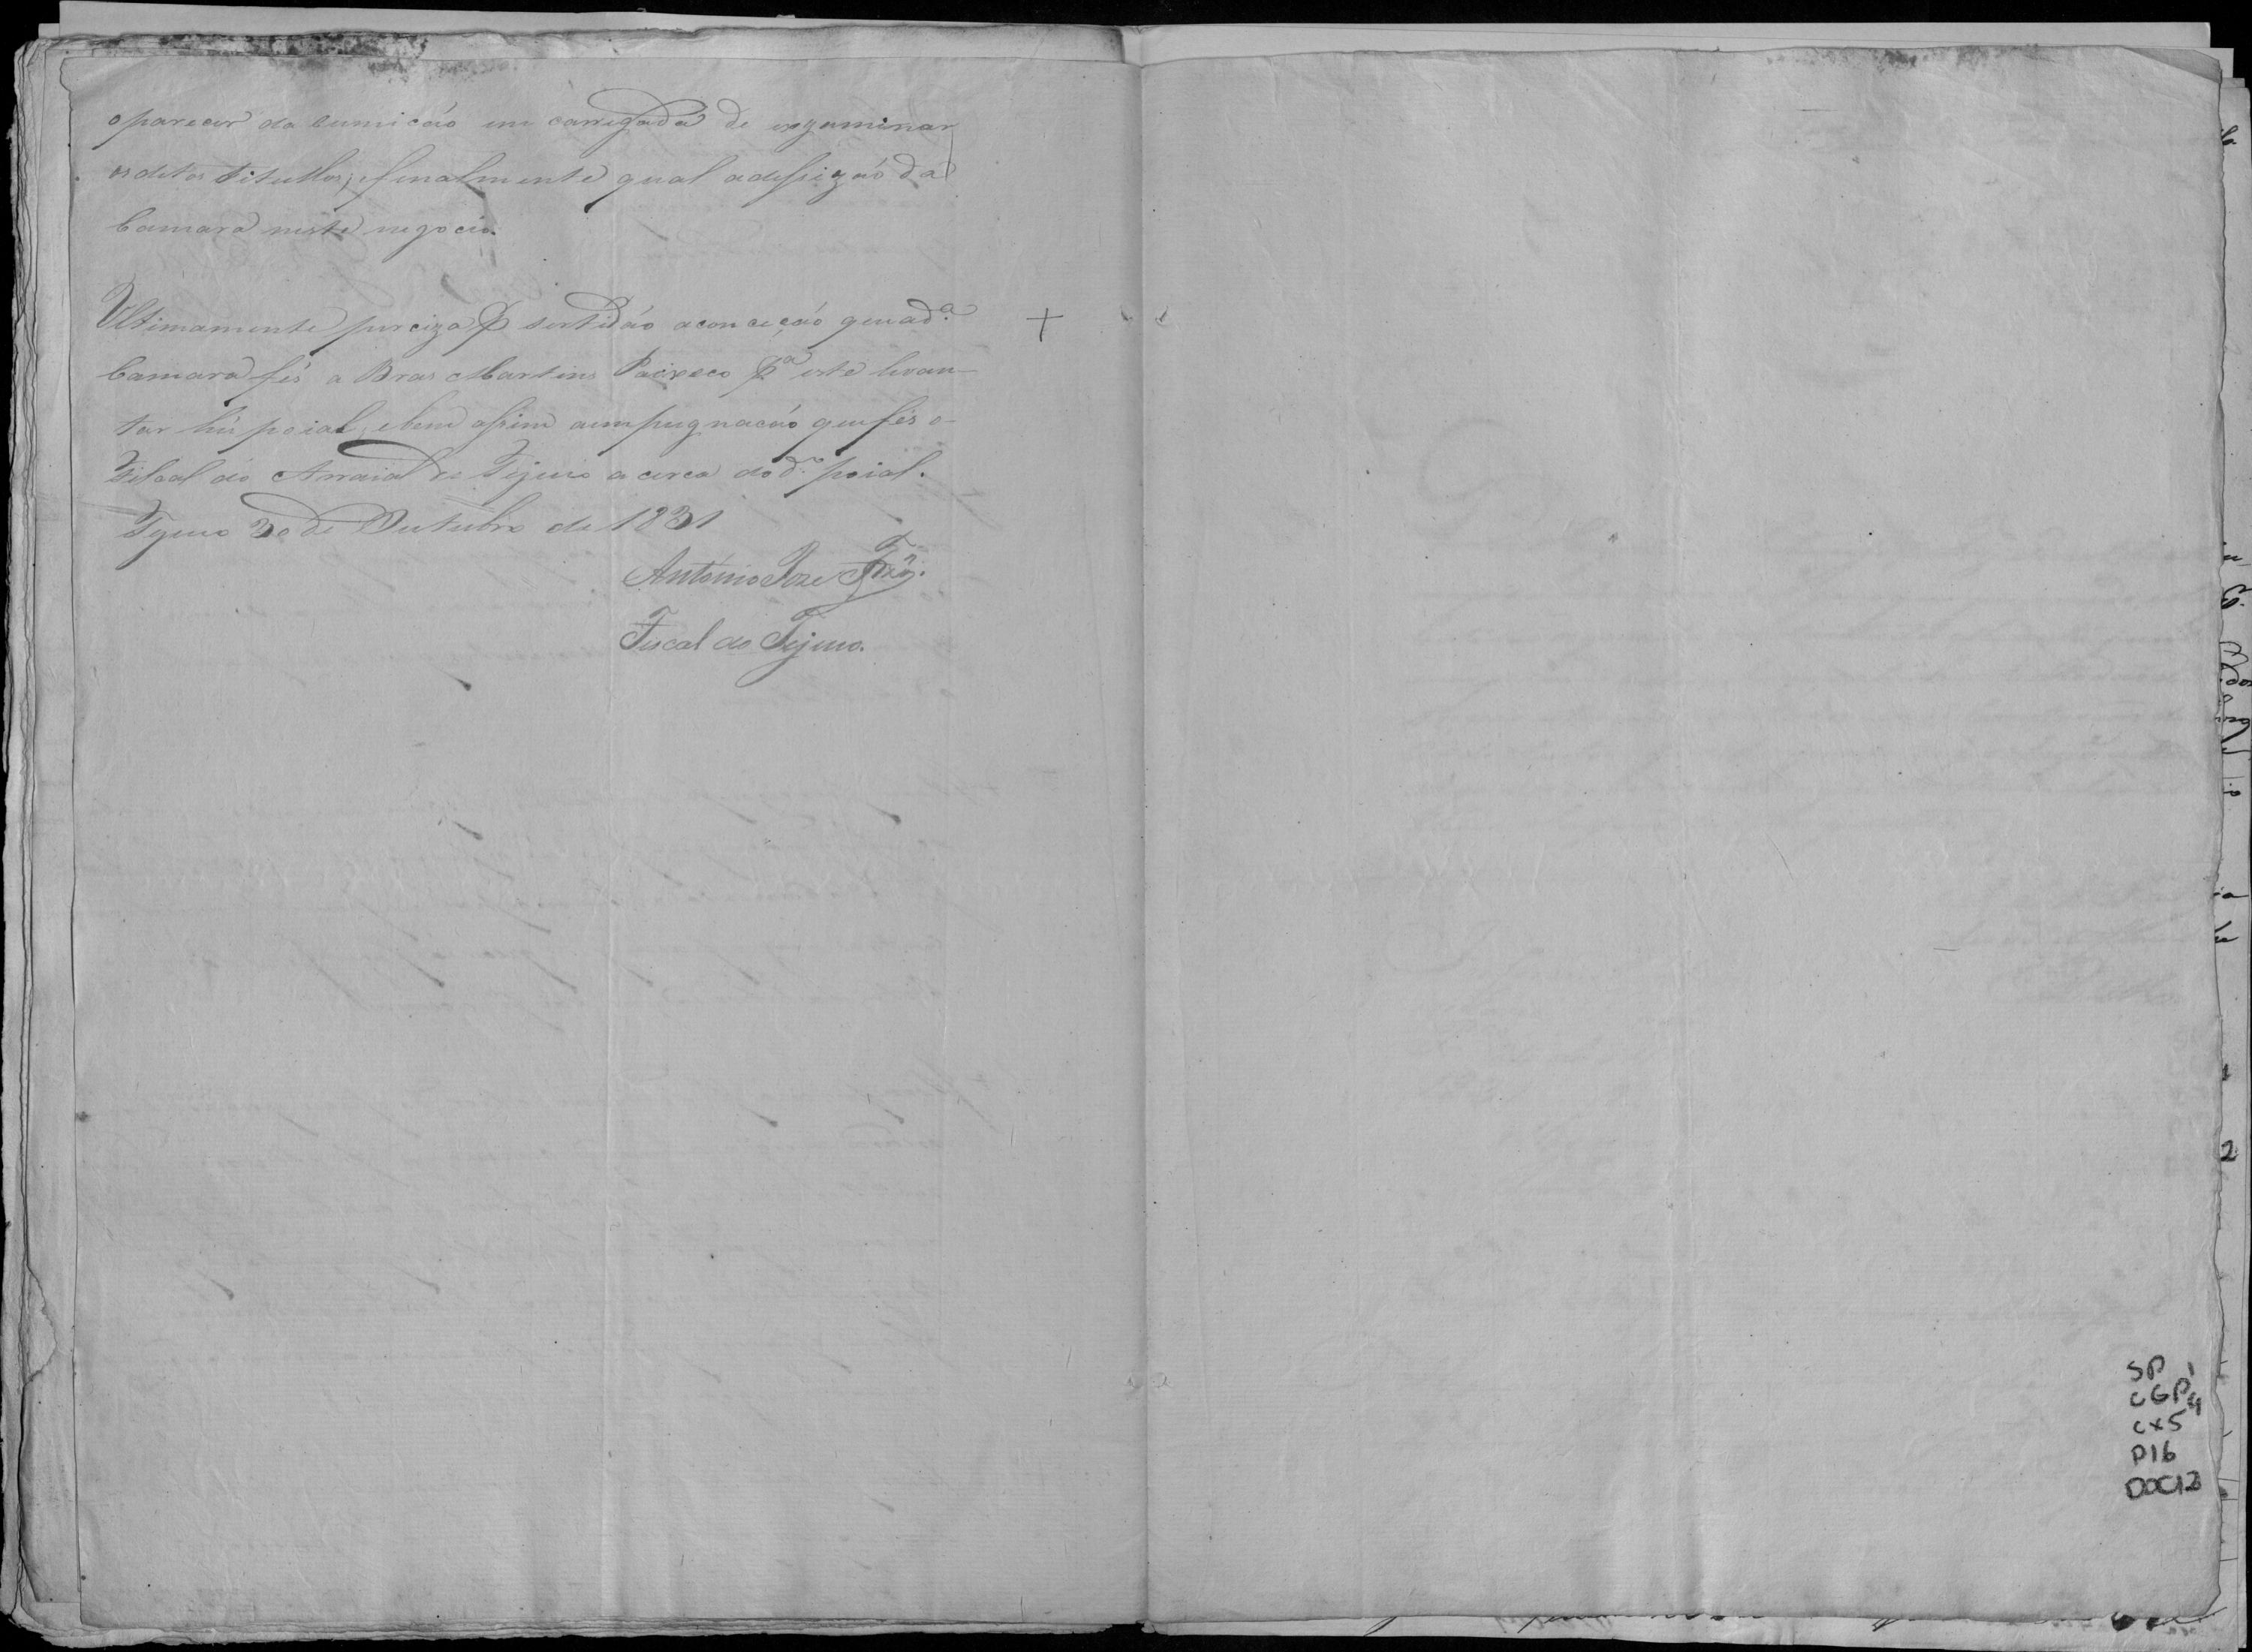 oparecer da Cumicáo em carregada de exzaminar
os ditos titullos, efinalmente qual adessizaó da
Camara neste negocio.
Ultimamente perciza P sertidáo aconceçáo quead.a
Camara fes a Bras Martins Paixeco P.a este levan-
tar hú poial, ebem assim aempugnacáo quefes o
Fiscal do Arraial do Tejuco a cerca dod.o poial.
Tejuco 30 de Outubro de 1831
António Joze
Fiscal do Tejuco.
+
SP
CGP4
CX5
P16
DOC12